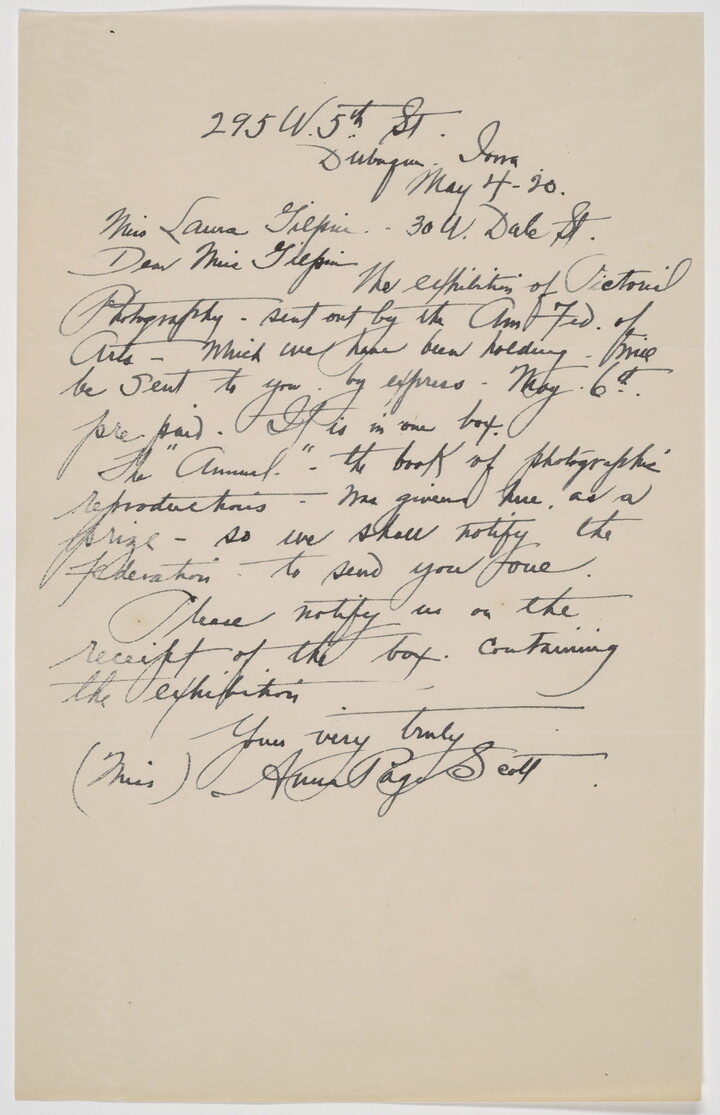 295 W. 5th St.
Dubuque. Iowa
May 4-20.
Miss Laura Gilpin - 30 W. Dale St.
Dear Miss Gilpin
The exhibition of Pictorial
Photography - sent out by the Am Fed. of
Arts - which we have been holding - will
be sent to you by express - May 6th.
pre-paid. It is in one box.
The "Annual" - the book of photographic
reproductions - was given here, as a
prize - so we shall notify the
federation - to send you one.
Please notify us on the
receipt of the box. containing
the exhibition
Yours very truly
(Miss) Anna Page Scott